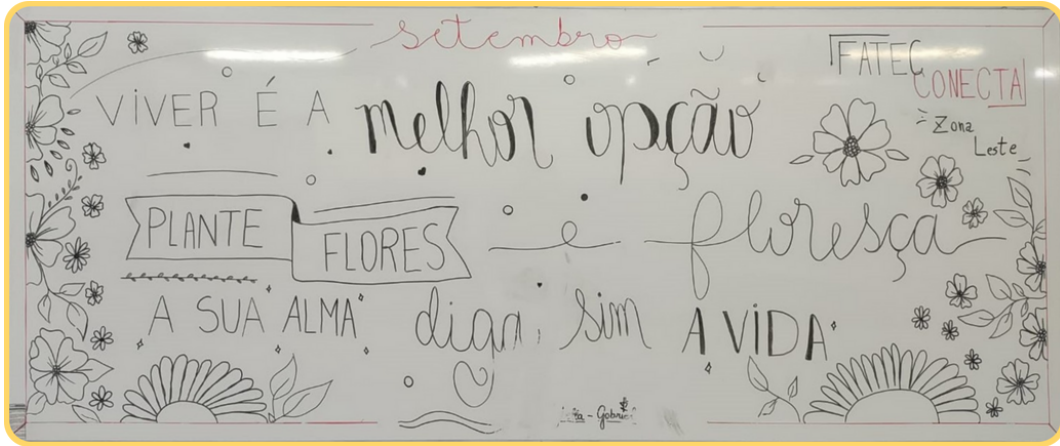 setembro
FATEC
CONECTA
Zona
Leste
VIVER É A melhor opção
PLANTE FLORES e floresça
A SUA ALMA diga, sim A VIDA